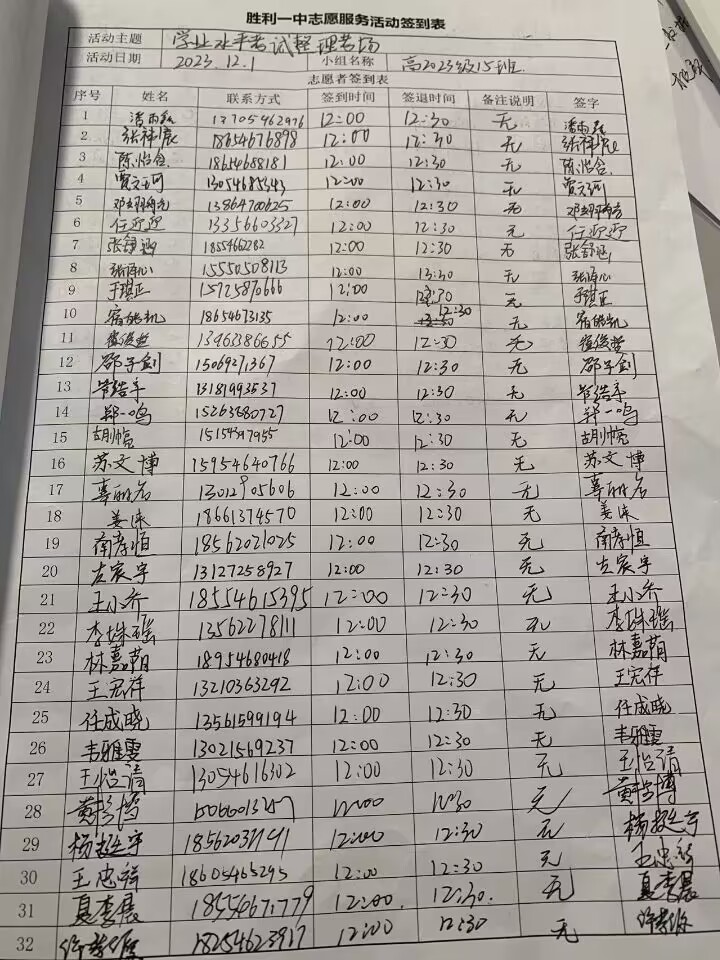 胜利一中志愿服务活动签到表
活动主题 学业水平考试整理考场
活动日期 2023.12.1 小组名称 高2023级15班
志愿者签到表
序号 姓名 联系方式 签到时间 签退时间 备注说明 签字
1 13705462976 12:00 12:30 无
2 18654676898 12:00 12:30 无
3 陈怡含 18654688181 12:00 12:30 无 陈怡含
4 贾文珂 13054685343 12:00 12:30 无 贾文珂
5 13864700625 12:00 12:30 无
6 任迎迎 13356603327 12:00 12:30 无 任迎迎
7 张舒涵 18554662282 12:00 12:30 无 张舒涵
8 15550508113 12:00 无
9 于琪正 15725870666 12:00 12:30 无 于琪正
10 18654673135 12:00 12:30 无
11 崔俊哲 13963386655 12:00 12:30 无 崔俊哲
12 邵子剑 15069271367 12:00 12:30 无 邵子剑
13 管皓宇 13181993537 12:00 12:30 无 管皓宇
14 郑一鸣 15263880727 12:00 12:30 无 郑一鸣
15 12:00 12:30 无
16 苏文博 15954640766 12:00 12:30 无 苏文博
17 13012905606 12:00 12:30 无
18 18661374570 12:00 12:30 无
19 18562021025 12:00 12:30 无
20 左宸宇 13127258927 12:00 12:30 无 左宸宇
21 王小乔 18554615395 12:00 12:30 无 王小乔
22 李姝瑶 13562278111 12:00 12:30 无 李姝瑶
23 林嘉萌 18954680418 12:00 12:30 无 林嘉萌
24 王宏祥 13210363292 12:00 12:30 无 王宏祥
25 任成晓 13561599194 12:00 12:30 无 任成晓
26 韦雅雯 13021569237 12:00 12:30 无 韦雅雯
27 王怡清 13054616302 12:00 12:30 无 王怡清
28 12:00 12:30 无
29 12:00 12:30 无
30 王忠祥 18605465295 12:00 12:30 无 王忠祥
31 夏李晨 12:00 12:30 无 夏李晨
32 18254623917 12:00 12:30 无